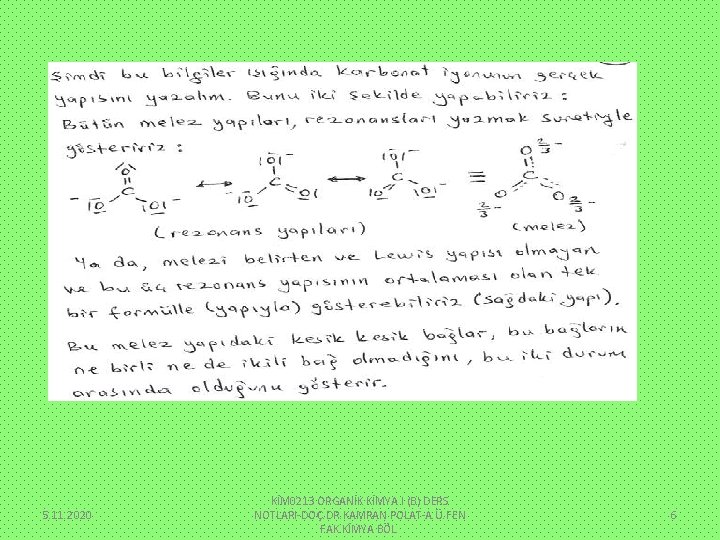 Şimdi bu bilgiler ışığında karbonat iyonunun gerçek
yapısını yazalım. Bunu iki şekilde yapabiliriz :
Bütün melez yapıları, rezonansları yazmak suretiyle
gösteririz :
(rezonans yapıları) (melez)
Ya da, melezi belirten ve Lewis yapısı olmayan
ve bu üç rezonans yapısının ortalaması olan tek
bir formülle (yapıyla) gösterebiliriz (sağdaki yapı).
Bu melez yapıdaki kesik kesik bağlar, bu bağların
ne birli ne de ikili bağ olmadığını, bu iki durum
arasında olduğunu gösterir.
5.11.2020
KİM0213 ORGANİK KİMYA I (B) DERS
NOTLARI-DOÇ.DR.KAMRAN POLAT-A.Ü.FEN
FAK.KİMYA BÖL
6